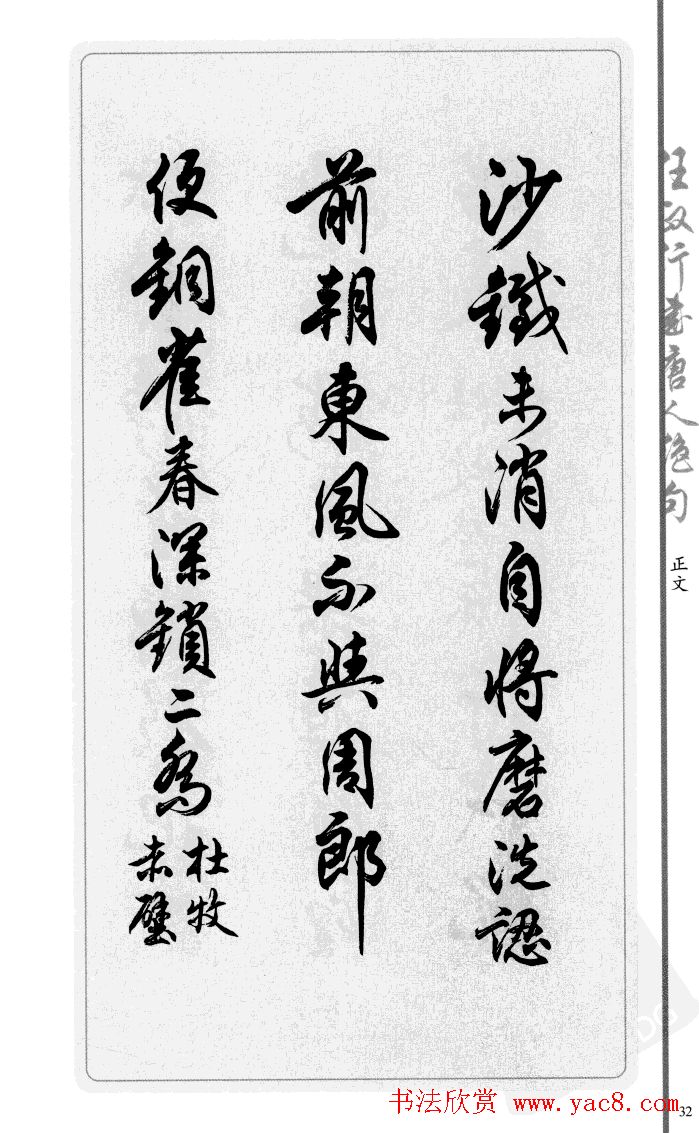 沙鐵未消自将磨洗認
前朝東風不與周郎
便銅雀春深鎖二喬
杜牧
赤壁
任政行書唐人絶句
正文
书法欣赏 www.yac8.com
32